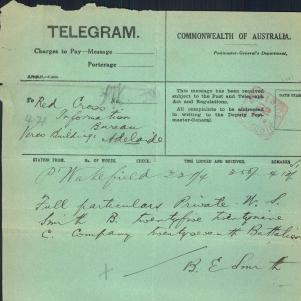 TELEGRAM.
Charges to Pay—Message
Porterage
COMMONWEALTH OF AUSTRALIA.
Postmaster-General's Department.
This message has been received
subject to the Post and Telegraph
Act and Regulations.
All complaints to be addressed
in writing to the Deputy Post-
master-General.
To Red Cross
Information
Bureau
Buildings Adelaide
STATION FROM. No. of WORDS. CHECK. TIME LODGED AND RECEIVED. REMARKS
Wakefield 22/4
Full particulars Private W. S.
Smith B. twentyfive twentynine
C. Company twentyseventh Battalion
B. E Smith